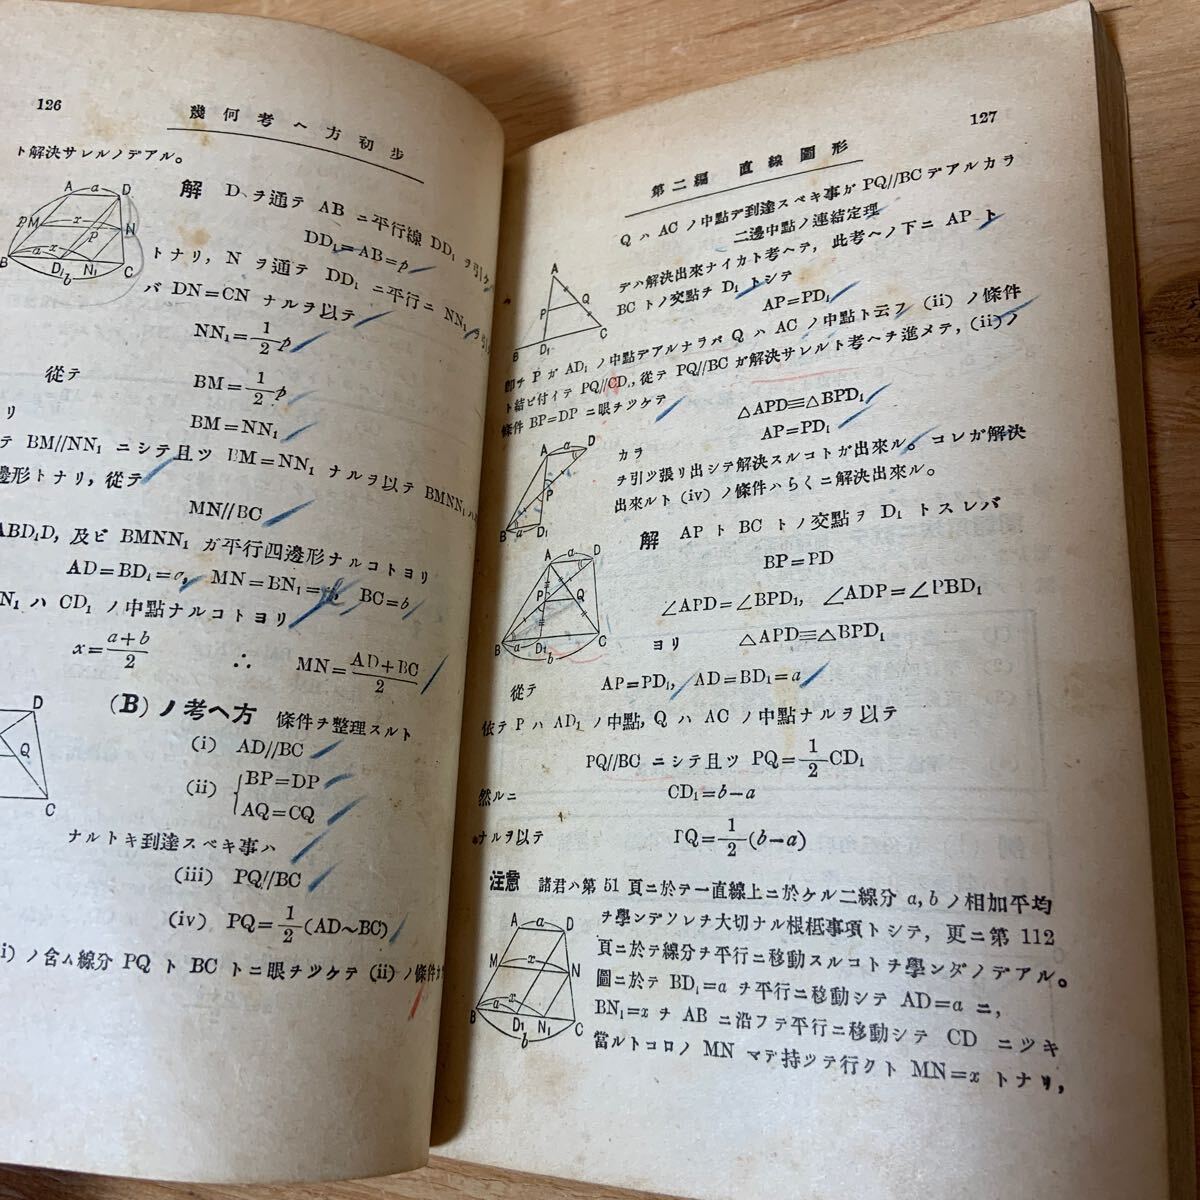 126
幾何考ヘ方初步
ト解決サレルノデアル。
解 D ヲ通テ AB ニ平行線 DD₁ ヲ引ケ
DD₁=AB=p
トナリ, N ヲ通テ DD₁ ニ平行ニ NN₁
バ DN=CN ナルヲ以テ
NN₁=1/2 p
從テ BM=1/2 p
リ BM=NN₁
テ BM//NN₁ ニシテ且ツ BM=NN₁ ナルヲ以テ BMNN₁ ハ
邊形トナリ, 從テ
MN//BC
ABD₁D, 及ビ BMNN₁ ガ平行四邊形ナルコトヨリ
AD=BD₁=a, MN=BN₁= BC=b
N₁ ハ CD₁ ノ中點ナルコトヨリ
x=(a+b)/2 ∴ MN=(AD+BC)/2
(B) ノ考ヘ方 條件ヲ整理スルト
(i) AD//BC
(ii) { BP=DP
AQ=CQ
ナルトキ到達スベキ事ハ
(iii) PQ//BC
(iv) PQ=1/2(AD~BC)
i) ノ含ム線分 PQ ト BC トニ眼ヲツケテ (ii) ノ條件
A a D
M x N
p P
B a x D₁ N₁ C
b
D
Q
C
127
第二編 直線圖形
Q ハ AC ノ中點デ到達スベキ事ガ PQ//BC デアルカラ
二邊中點ノ連結定理
デハ解決出來ナイカト考ヘテ, 此考ヘノ下ニ AP ト
BC トノ交點ヲ D₁ トシテ
AP=PD₁
卽チ P ガ AD₁ ノ中點デアルナラバ Q ハ AC ノ中點ト云フ (ii) ノ條件
ト結ビ付イテ PQ//CD₁, 從テ PQ//BC ガ解決サレルト考ヘヲ進メテ, (ii) ノ
條件 BP=DP ニ眼ヲツケテ
△APD≡△BPD₁
カラ AP=PD₁
ヲ引ツ張リ出シテ解決スルコトガ出來ル。コレガ解決
出來ルト (iv) ノ條件ハらくニ解決出來ル。
解 AP ト BC トノ交點ヲ D₁ トスレバ
BP=PD
∠APD=∠BPD₁, ∠ADP=∠PBD₁
ヨリ △APD≡△BPD₁
從テ AP=PD₁, AD=BD₁=a
依テ P ハ AD₁ ノ中點, Q ハ AC ノ中點ナルヲ以テ
PQ//BC ニシテ且ツ PQ=1/2 CD₁
然ルニ CD₁=b−a
ナルヲ以テ PQ=1/2(b−a)
注意 諸君ハ第 51 頁ニ於テ一直線上ニ於ケル二線分 a, b ノ相加平均
ヲ學ンデソレヲ大切ナル根柢事項トシテ, 更ニ第 112
頁ニ於テ線分ヲ平行ニ移動スルコトヲ學ンダノデアル。
圖ニ於テ BD₁=a ヲ平行ニ移動シテ AD=a ニ,
BN₁=x ヲ AB ニ沿フテ平行ニ移動シテ CD ニツキ
當ルトコロノ MN マデ持ツテ行クト MN=x トナリ,
A
P Q
B D₁ C
A a D
P
B a D₁
A a D
P Q
B a D₁ C
b
A a D
M x N
B a x D₁ N₁ C
b